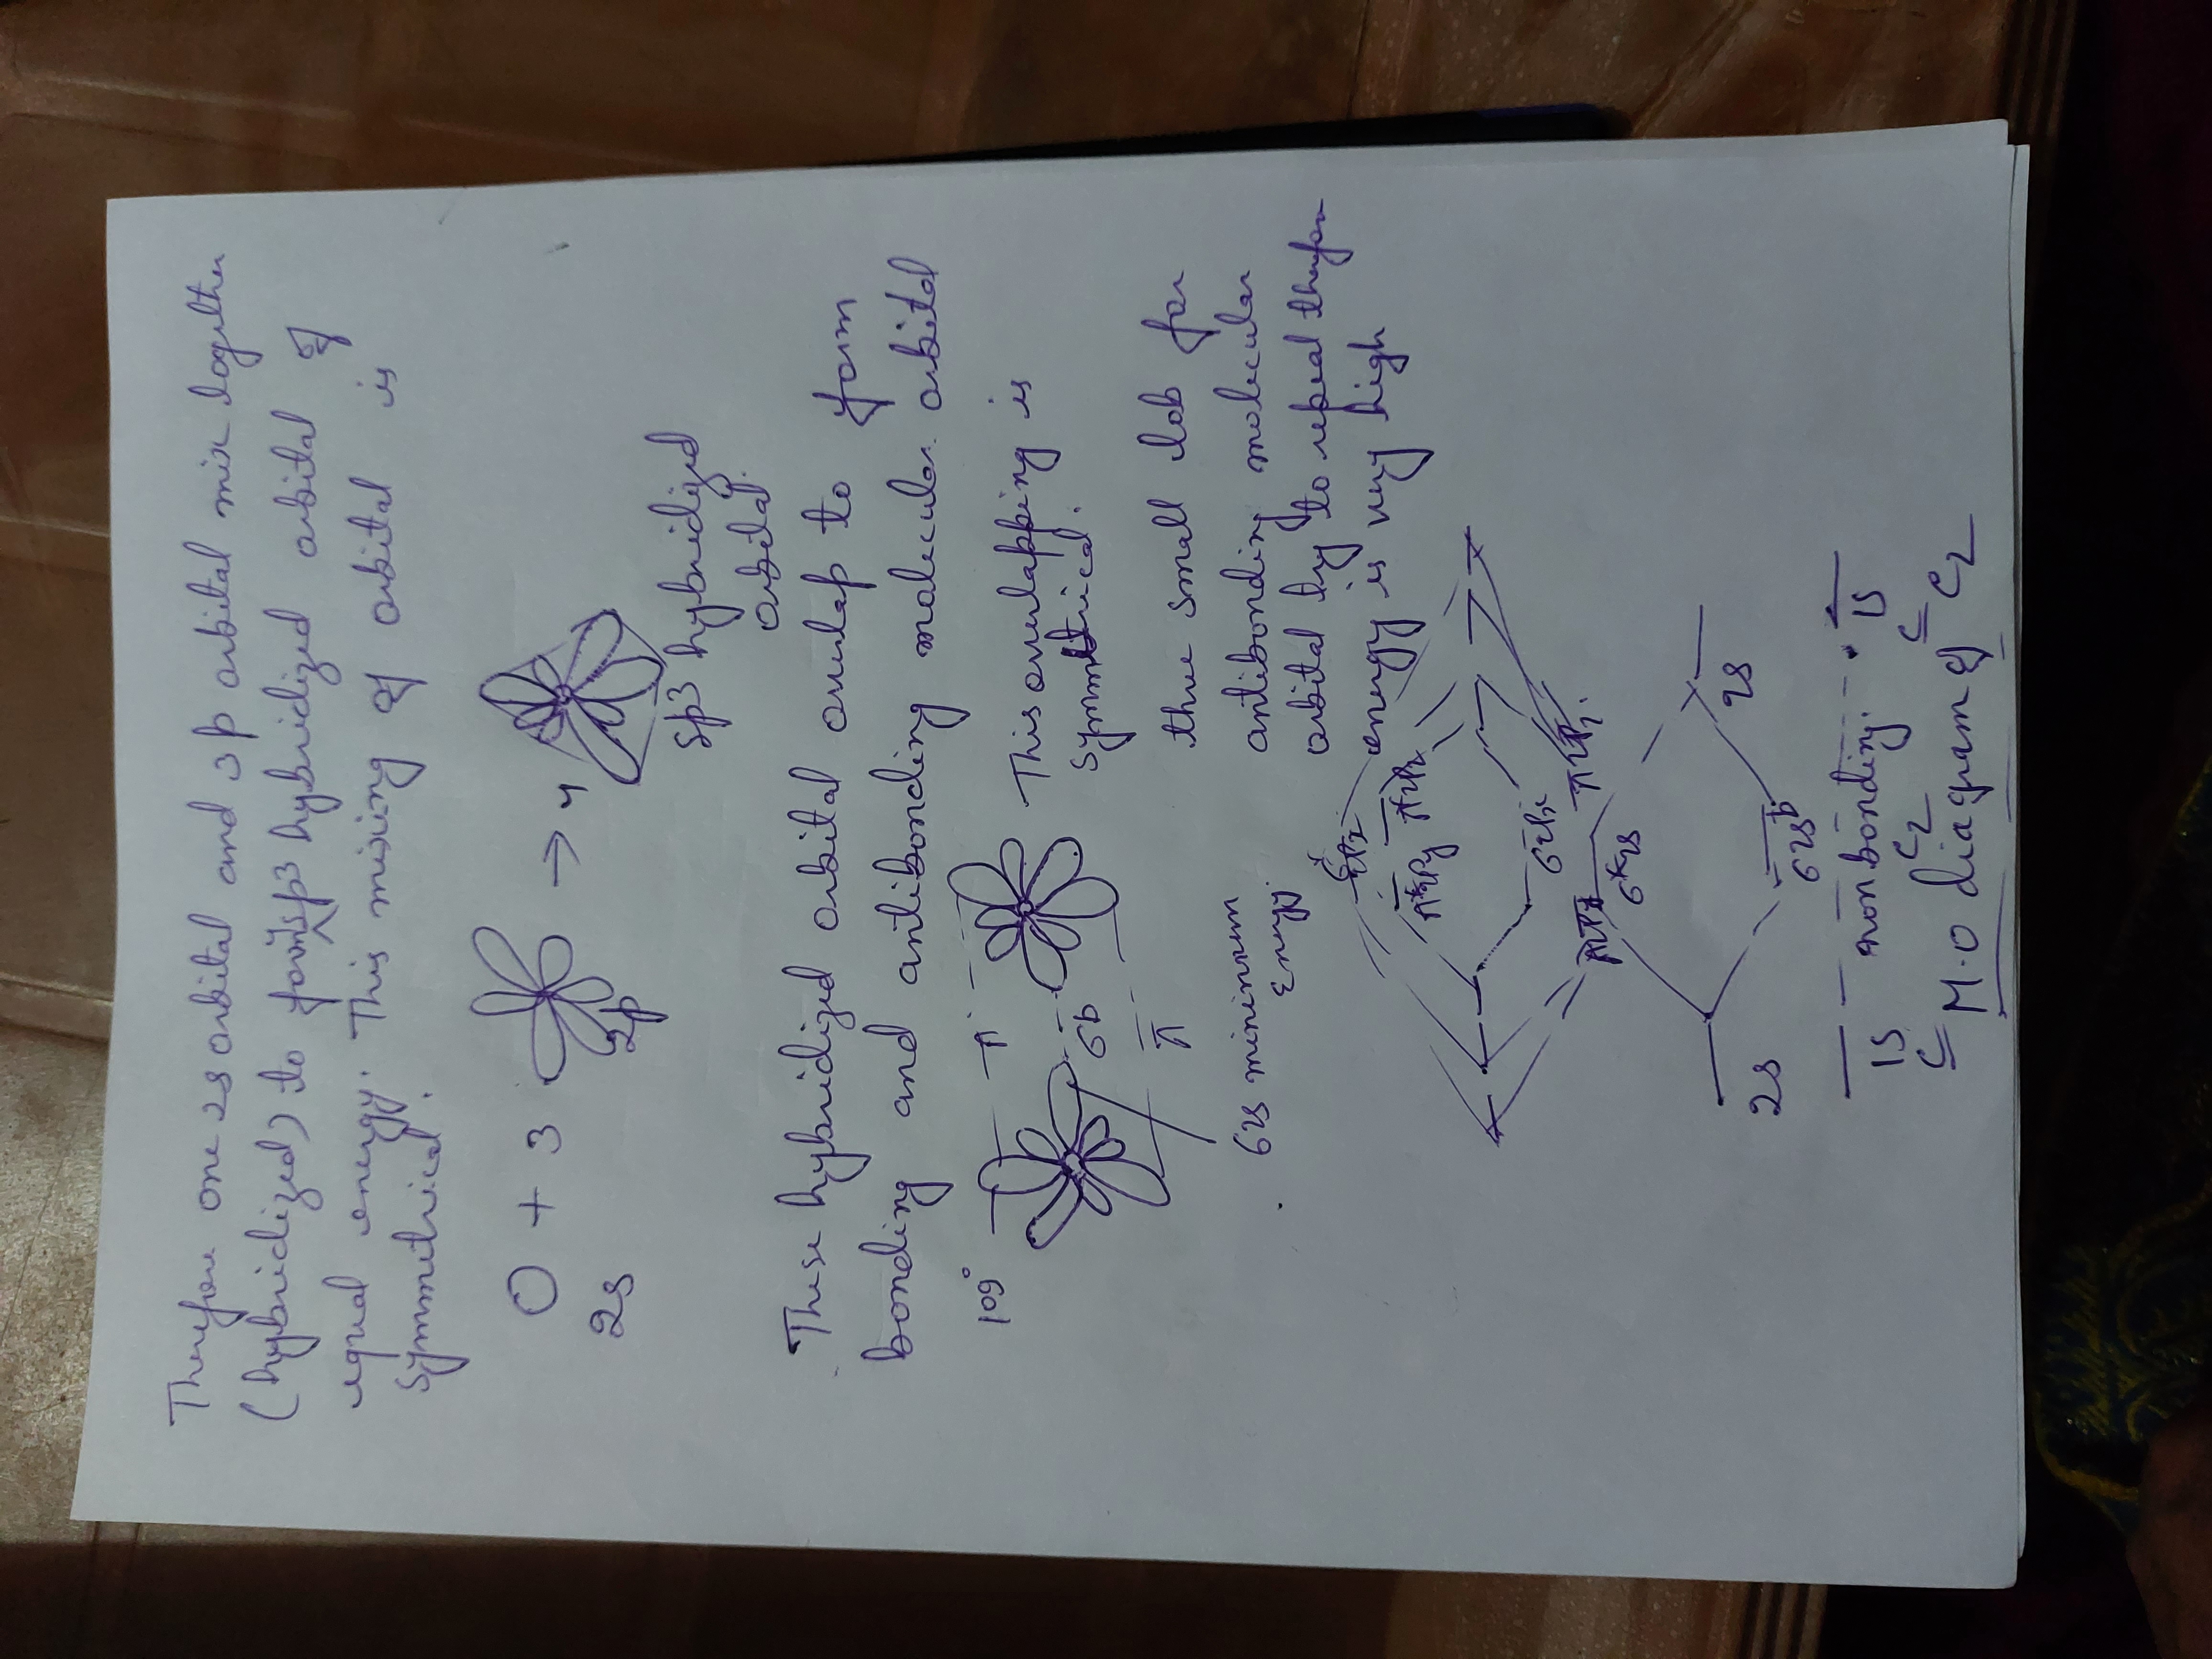 Therefore one 2s orbital and 3p orbital mix together
(hybridized) to form sp3 hybridized orbital of
equal energy. This mixing of orbital is
symmetrical.
O + 3 → 4
2s 2p
sp3 hybridized
orbital.
These hybridized orbital overlap to form
bonding and antibonding molecular orbital
109°
π
σb
π
This overlapping is
symmetrical.
σ2s minimum
Energy.
three small lob for
antibonding molecular
orbital try to repeal therefor
energy is very high
π*2Py
σ*2s
2s 2s
σ2sb
nonbonding
1s 1s
C C2 C
M.O diagram of C2